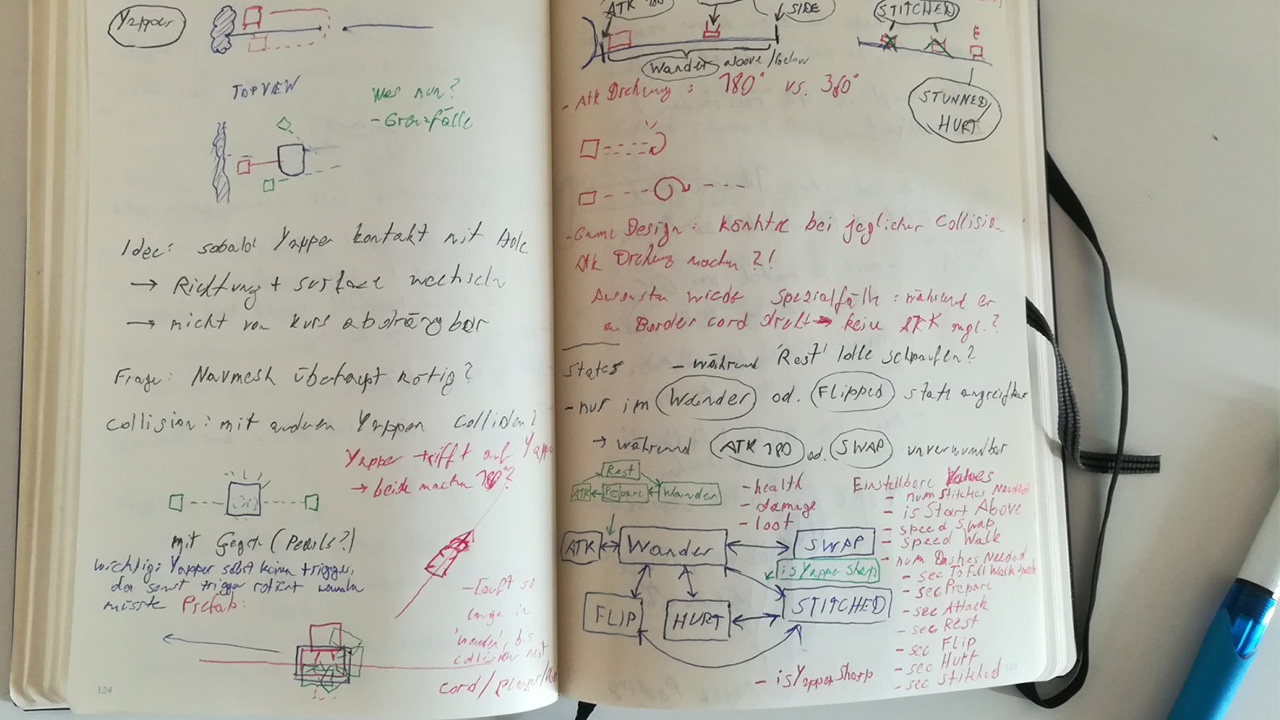 Yapper
TOPVIEW
Was nun?
- Grenzfälle
Idee: sobald Yapper kontakt mit
→ Richtung + surface wechseln
→ nicht von kurs abdrängbar
Frage: Navmesh überhaupt nötig?
Collision: mit anderen Yappern colliden?
Yapper trifft auf
→ beide machen 180°?
mit Gegn. (Pearls?)
wichtig: Yapper selbst kann trigger,
da sonst trigger rotiert werden
müsste Prefab:
- läuft so
lange in
'wander' bis
collision mit
cord/
124
ATK 180
SIDE
Wander above/below
STITCHED
STUNNED/
HURT
- Atk Drehung: 180° vs. 360°
- Game Design: könnte bei jeglicher Collision
Atk Drehung machen?!
Ansonsten wieder Spezialfälle: während er
an Border cord dreht → keine ATK mgl.?
States - während 'Rest'
- nur im Wander od. Flipped state angreifbar
→ während ATK 180 od. SWAP unverwundbar
Rest
ATK Prepare Wander
- health
- damage
- loot
Einstellbare Values
- num Stitches Needed
- is Start Above
- speed Swap
- speed Walk
- num Dashes Needed
- sec To Full Walk Speed
- sec Prepare
- sec Attack
- sec Rest
- sec Flip
- sec Hurt
- sec Stitched
ATK Wander SWAP
isYapperSharp
FLIP HURT STITCHED
- isYapperSharp